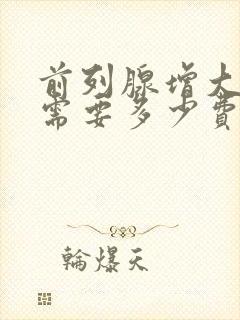 前列腺增大
需要多少費
輪爆天